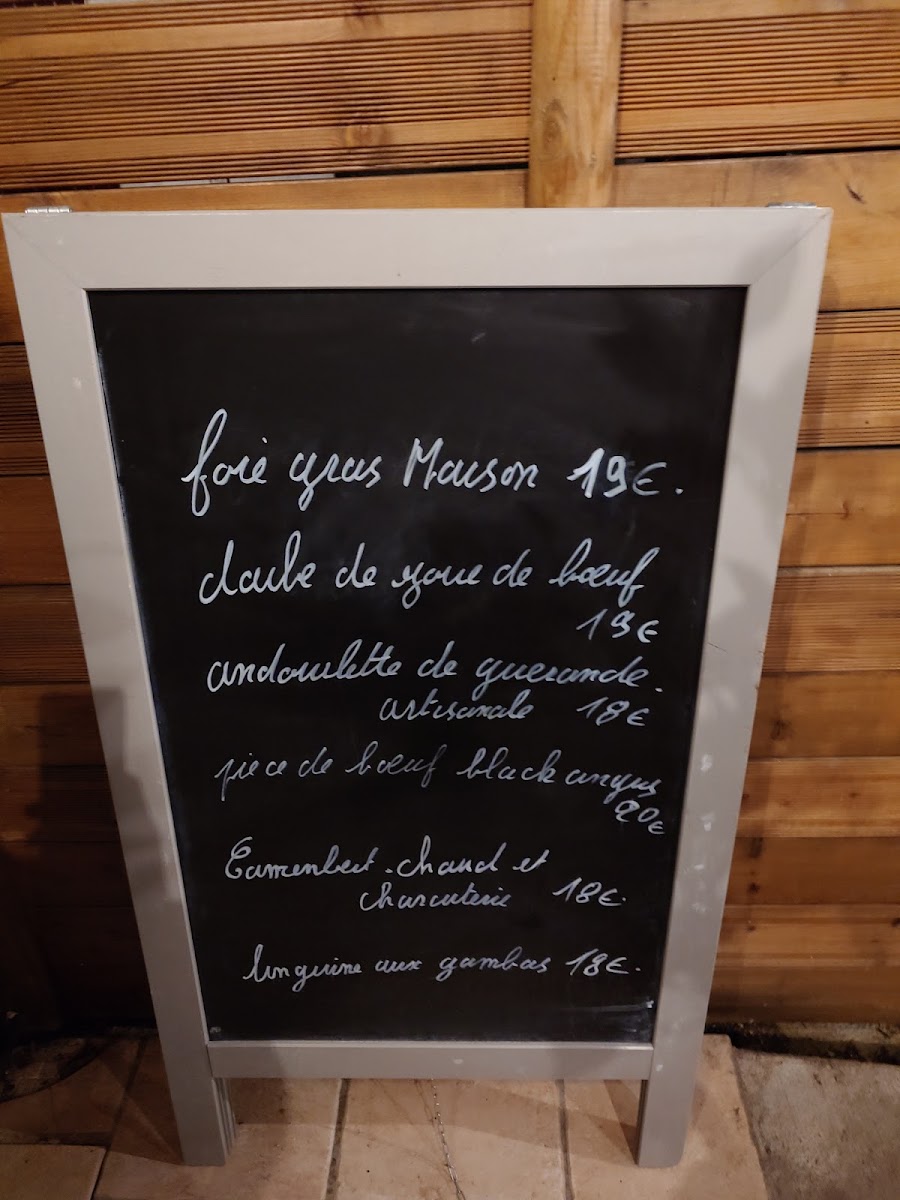 foie gras Maison 19€.
daube de joue de bœuf
19€
andouillette de guerande.
artisanale 18€
piece de bœuf black angus
20€
Camenbert chaud et
charcuterie 18€.
linguine aux gambas 18€.